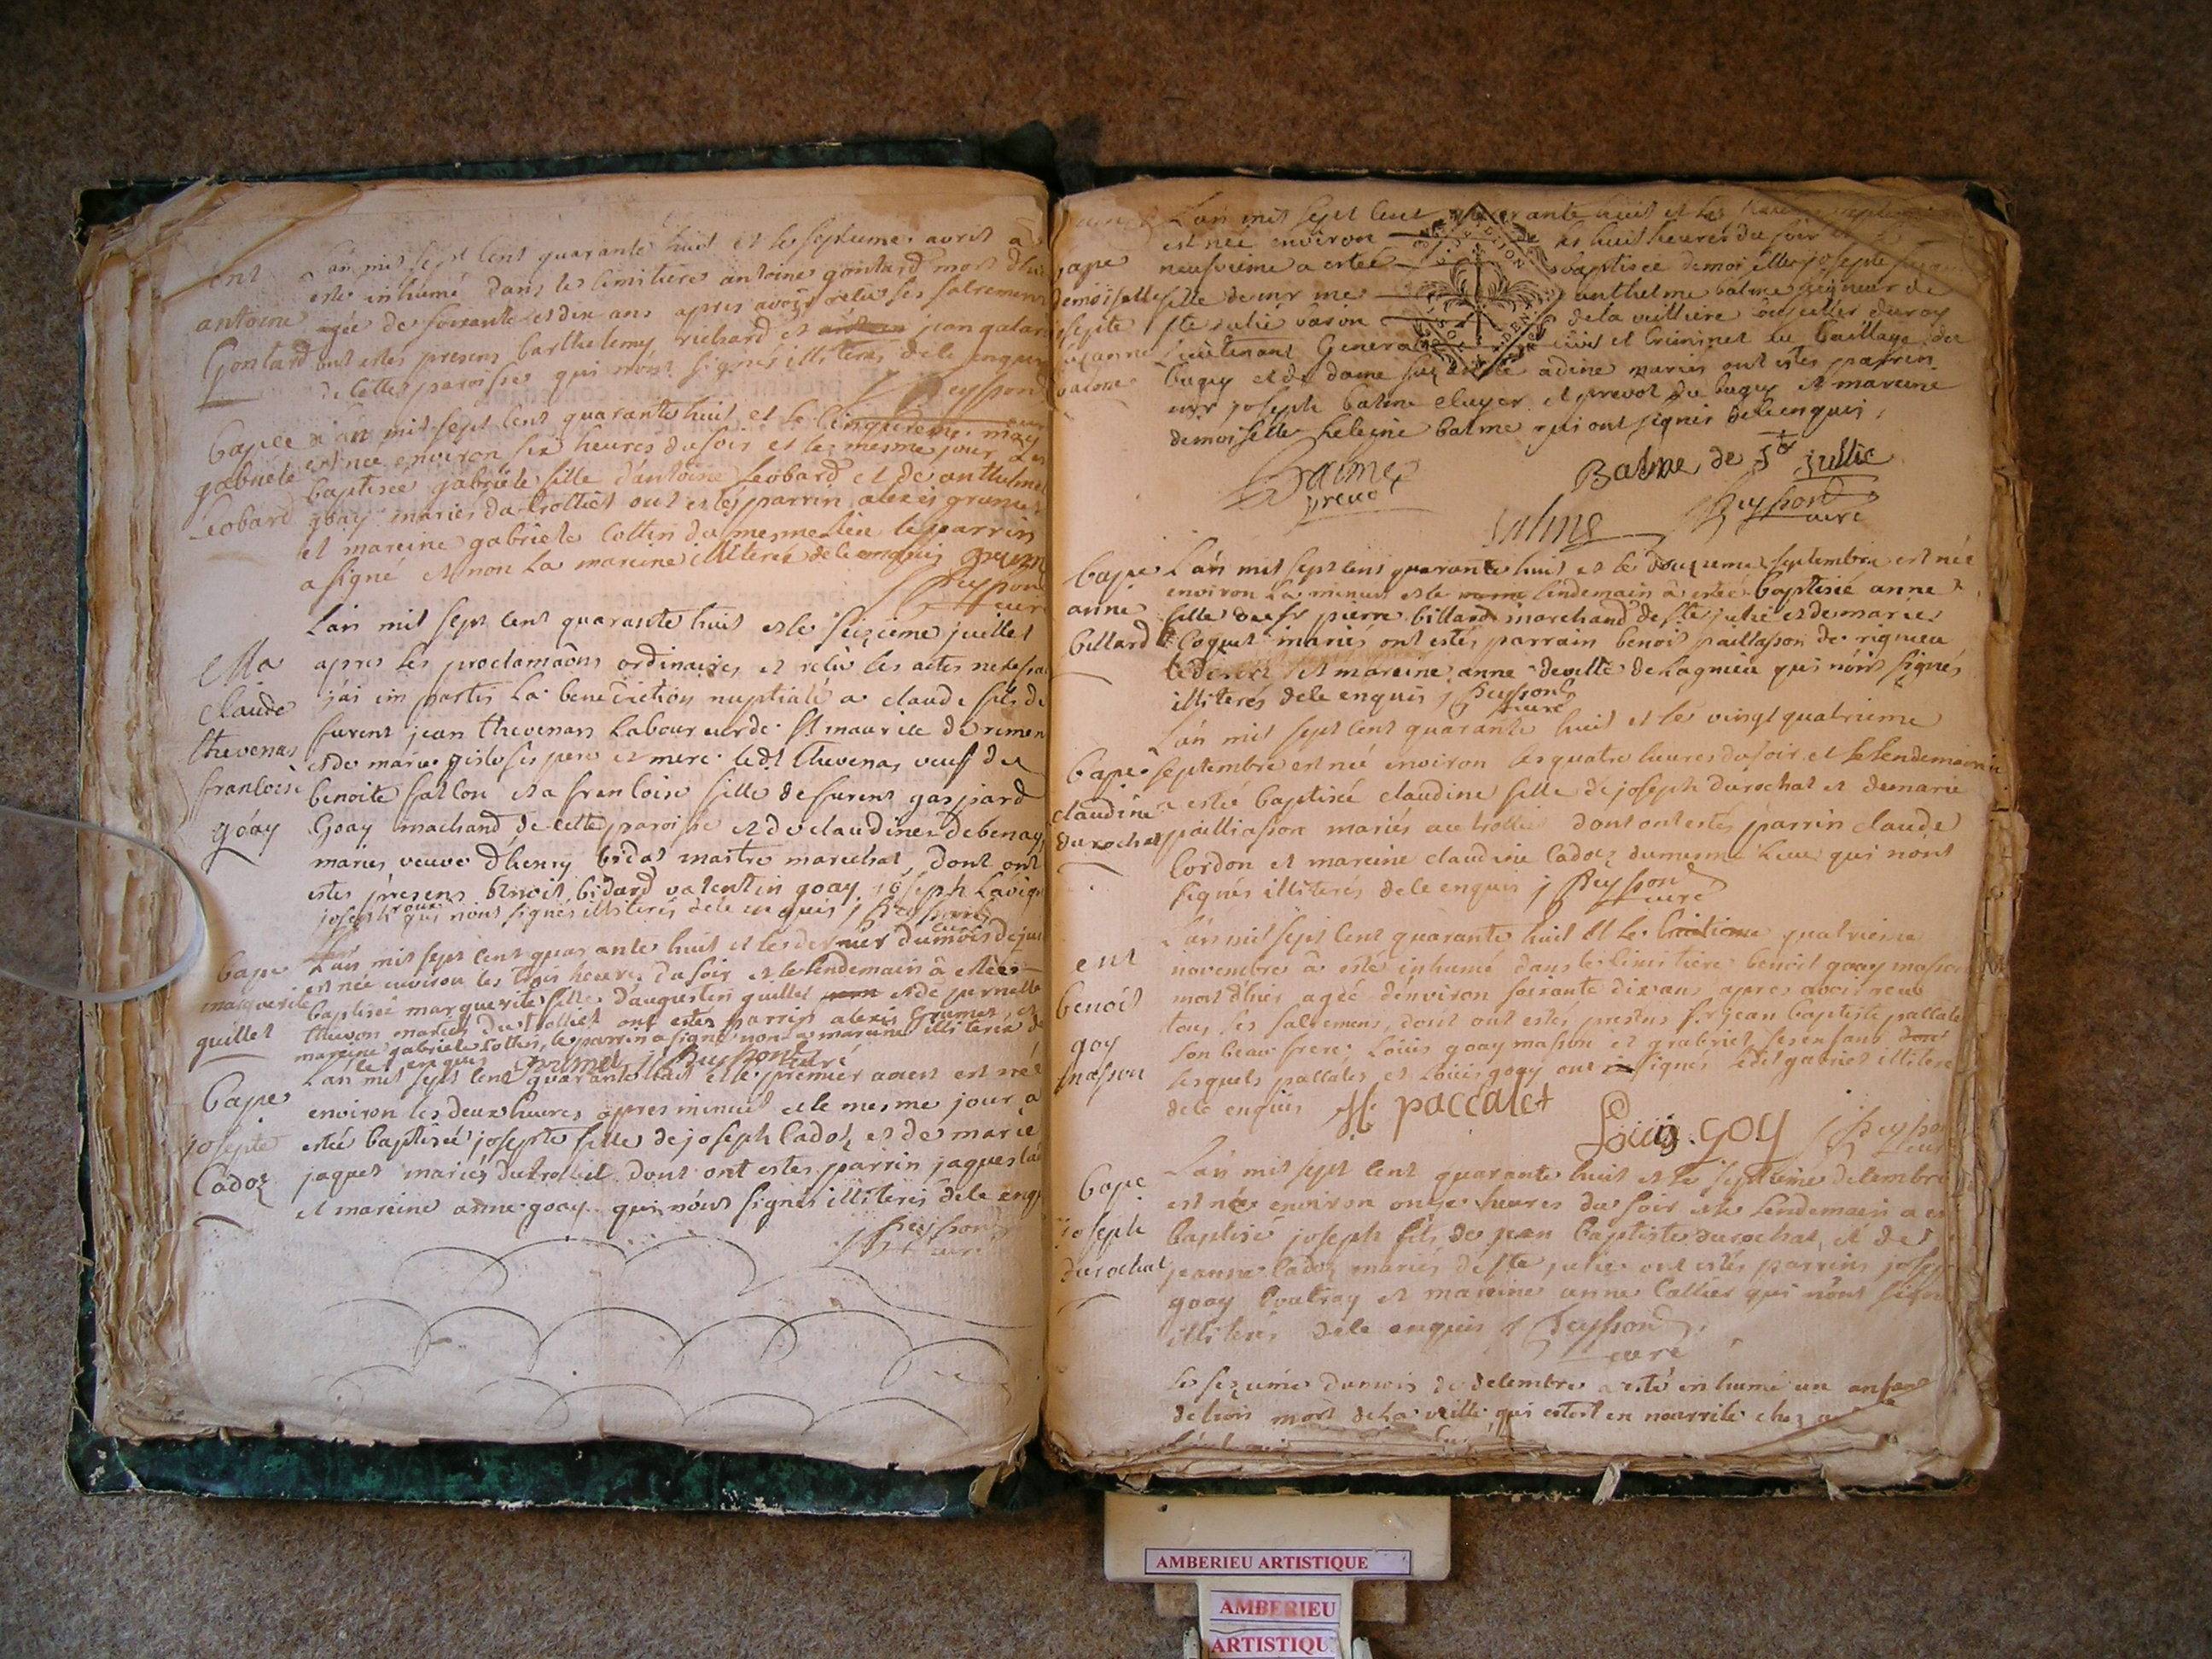 ent
antoine
Gontard
L'an mil sept cent quarante huit et le septieme avril a
este inhumé dans le cimitiere antoine gontard mort
agée de soixante et dix ans apres avoir
ont estes presens barthelemy richard et jean
de cette paroisse qui n'ont signés illiterés de ce enquis
Peysson
curé
bapee
gabriele
Leobard
L'an mil sept cent quarante huit et le cinquieme may
est née environ six heures du soir et le mesme jour a
baptisée gabriele fille d'antoine Leobard et de anthelmet
goay mariés du trolliet ont estés parrin alexis grumet
et mareine gabriele Cottin du mesme lieu le parrin
a signé et non la mareine illiterée de ce enquis
Peysson
curé
Ma
Claude
thevenas
francoise
goay
L'an mil sept cent quarante huit et le seizieme juillet
apres les proclamaôns ordinaires et
j'ai imparti la benediction nuptiale a claude fils de
furent jean thevenas Laboureur de st maurice de remen
et de marie ses pere et mere ledt thevenas veuf de
benoite fallon et a francoise fille de furent gaspard
Goay machand de cette paroisse et de claudine debenay
mariés veuve d'henry bidat maitre marechat, dont ont
estes presens benoit bidard valentin goay joseph
joseph roux qui n'ont signés illiterés de ce enquis Peysson
curé
bape
marguerite
guillet
L'an mil sept cent quarante huit et le dernier du mois de
est née environ les trois heures du soir et le lendemain a estée
baptisée marguerite fille d'augustin guillet et de pernette
thevon mariés du trolliet ont estes parrin alexis Grumet et
mareine gabriele Cottin, le parrin a signé non la mareine illiterée de
ce enquis Grumet Peysson curé
bape
josepte
Cadoz
L'an mil sept cent quarante huit et le premier aoust est née
environ les deux heures apres minuit et le mesme jour a
estée baptisée josepte fille de joseph Cadoz et de marie
jaquet mariés du troliet dont ont estes parrin jaques
et mareine anne goay qui n'ont signés illiterés de ce enq
Peysson
curé
bape
demoiselle
josepte
suzanne
balme
L'an mil sept cent quarante huit et le
est née environ les huit heures du soir et
neufvieme a estée baptisée demoiselle josepte
fille de mr me anthelme balme seigneur de
ste julie baron de la velliere conseiller du roy
Lieutenant General civil et criminel au bailliage du
bugey et de dame adine mariés ont estes parrein
mr joseph balme ecuyer et prevot du bugey et mareine
demoiselle heleine balme qui ont signés de ce enquis
Balme
prevot
Balme de Ste jullie
balme
Peysson
curé
bape
anne
billard
L'an mil sept cent quarante huit et le douzieme septembre est née
environ la minuit et le lendemain a estée baptisée anne
fille du sr pierre billard marchand de ste julie et de marie
Coquet mariés ont estes parrain benoit paillasson de rigneu
le desert et mareine anne deville de Lagnieu qui n'ont signés
illiterés de ce enquis Peysson
curé
bape
claudine
durochat
L'an mil sept cent quarante huit et le vingt quatrieme
septembre est née environ les quatre heures du soir et le lendemain
a estée baptisée claudine fille de joseph durochat et de marie
pailliasson mariés au trollie dont ont estés parrin claude
Cordon et mareine claudine Cadoz du mesme lieu qui n'ont
signés illiterés de ce enquis Peysson
curé
ent
benoit
goy
masson
L'an mil sept cent quarante huit et le quatrieme
novembre a esté inhumé dans le cimitiere benoit goay masson
mort d'hier agée d'environ soixante dix ans apres avoir receu
tous ses sacremens, dont ont estés presens sr jean baptiste pallalet
son beau frere, Loüis goay masson et grabriel ses enfans
lesquels pallalet et Loüis goay ont signés ledit gabriel illiteré
de ce enquis
paccalet
Louis goy
Peysson
curé
bape
joseph
durochat
L'an mil sept cent quarante huit et le septieme decembre
est née environ onze heures du soir et le lendemain a
baptisé joseph fils de jean baptiste durochat et de
jeanne Cadoz mariés de ste julie ont estés parrins joseph
goay et mareine anne Callier qui n'ont signé
illiterés de ce enquis Peysson
curé
Le sezieme du mois de decembre a esté inhumé un enfant
mort de la veille qui estoit en nourrice chez
AMBERIEU ARTISTIQUE
AMBERIEU
ARTISTIQU